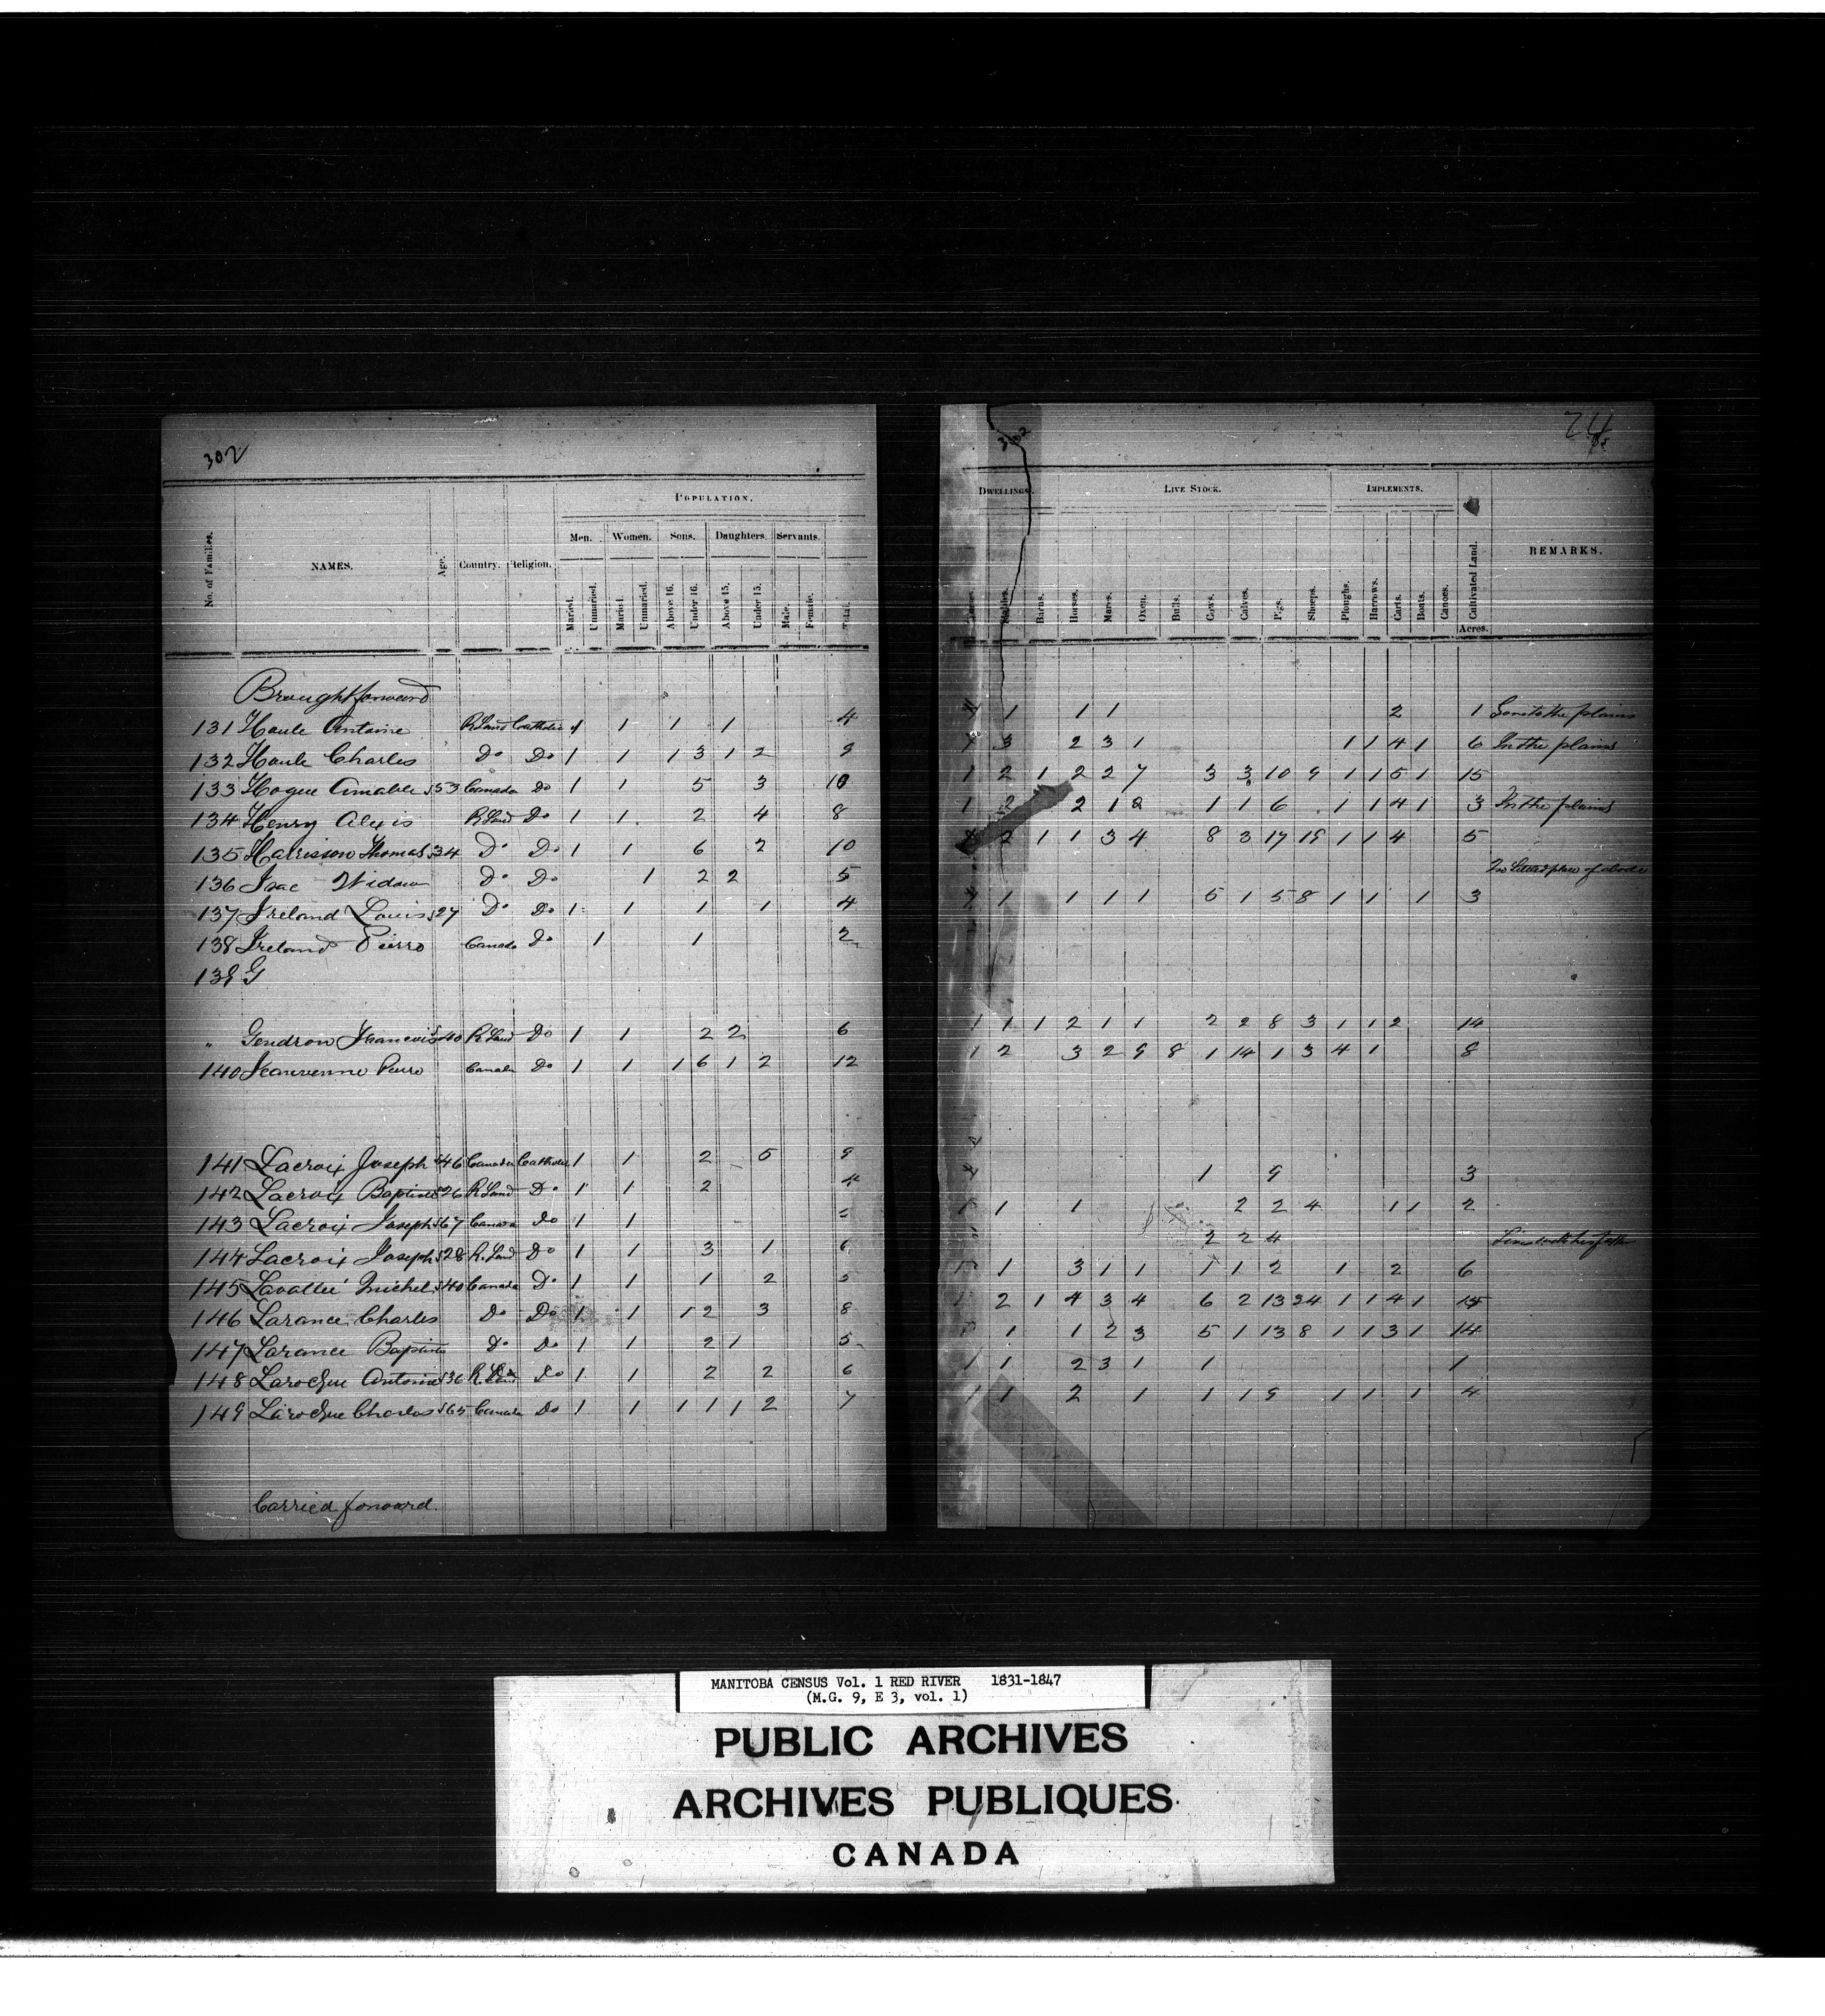 302
POPULATION.
No. of Families. NAMES. Age. Country. Religion. Men. Women. Sons. Daughters. Servants.
Married. Unmarried. Married. Unmarried. Above 16. Under 16. Above 15. Under 15. Male. Female. Total.
Brought forward
131 Houle Antoine R Land Catholic 1 1 1 1 4
132 Houle Charles Do Do 1 1 1 3 1 2 9
133 Hogue Amable 53 Canada Do 1 1 5 3 10
134 Henry Alexis R Land Do 1 1 2 4 8
135 Harrison Thomas 34 Do Do 1 1 6 2 10
136 Isac Widow Do Do 1 2 2 5
137 Ireland Louis 27 Do Do 1 1 1 1 4
138 Ireland Pierre Canada Do 1 1 2
139 G
" Gendron Francois 40 R Land Do 1 1 2 2 6
140 Jeanvenne Pierre Canada Do 1 1 1 6 1 2 12
141 Lacroix Joseph 46 Canada Catholic 1 1 2 5 9
142 Lacroix Baptiste 26 R Land Do 1 1 2 4
143 Lacroix Joseph 67 Canada Do 1 1
144 Lacroix Joseph 28 R. Land Do 1 1 3 1 6
145 Lavallée Michel 40 Canada Do 1 1 1 2 5
146 Larance Charles Do Do 1 1 1 2 3 8
147 Larance Baptiste Do Do 1 1 2 1 5
148 Larocque Antoine 36 R. Land Do 1 1 2 2 6
149 Larocque Charles 65 Canada Do 1 1 1 1 1 2 7
Carried forward.
302
24
DWELLINGS. LIVE STOCK. IMPLEMENTS.
Stables. Barns. Horses. Mares. Oxen. Bulls. Cows. Calves. Pigs. Sheeps. Ploughs. Harrows. Carts. Boats. Canoes. Cultivated Land. REMARKS.
Acres.
1 1 1 2 1 Gone to the plains
3 2 3 1 1 1 4 1 6 In the plains
1 2 1 2 2 7 3 3 10 9 1 1 5 1 15
1 2 2 1 2 1 1 6 1 1 4 1 3 In the plains
2 1 1 3 4 8 3 17 19 1 1 4 5
No place of abode
1 1 1 1 5 1 5 8 1 1 1 3
1 1 1 2 1 1 2 2 8 3 1 1 2 14
1 2 3 2 9 8 1 14 1 3 4 1 8
1 9 3
1 1 2 2 4 1 1 2
2 2 4 Lives with his father
1 3 1 1 1 1 2 1 2 6
2 1 4 3 4 6 2 13 24 1 1 4 1 15
1 1 2 3 5 1 13 8 1 1 3 1 14
1 1 2 3 1 1 1
1 1 2 1 1 1 9 1 1 1 4
MANITOBA CENSUS Vol. 1 RED RIVER 1831-1847
(M.G. 9, E 3, vol. 1)
PUBLIC ARCHIVES
ARCHIVES PUBLIQUES
CANADA